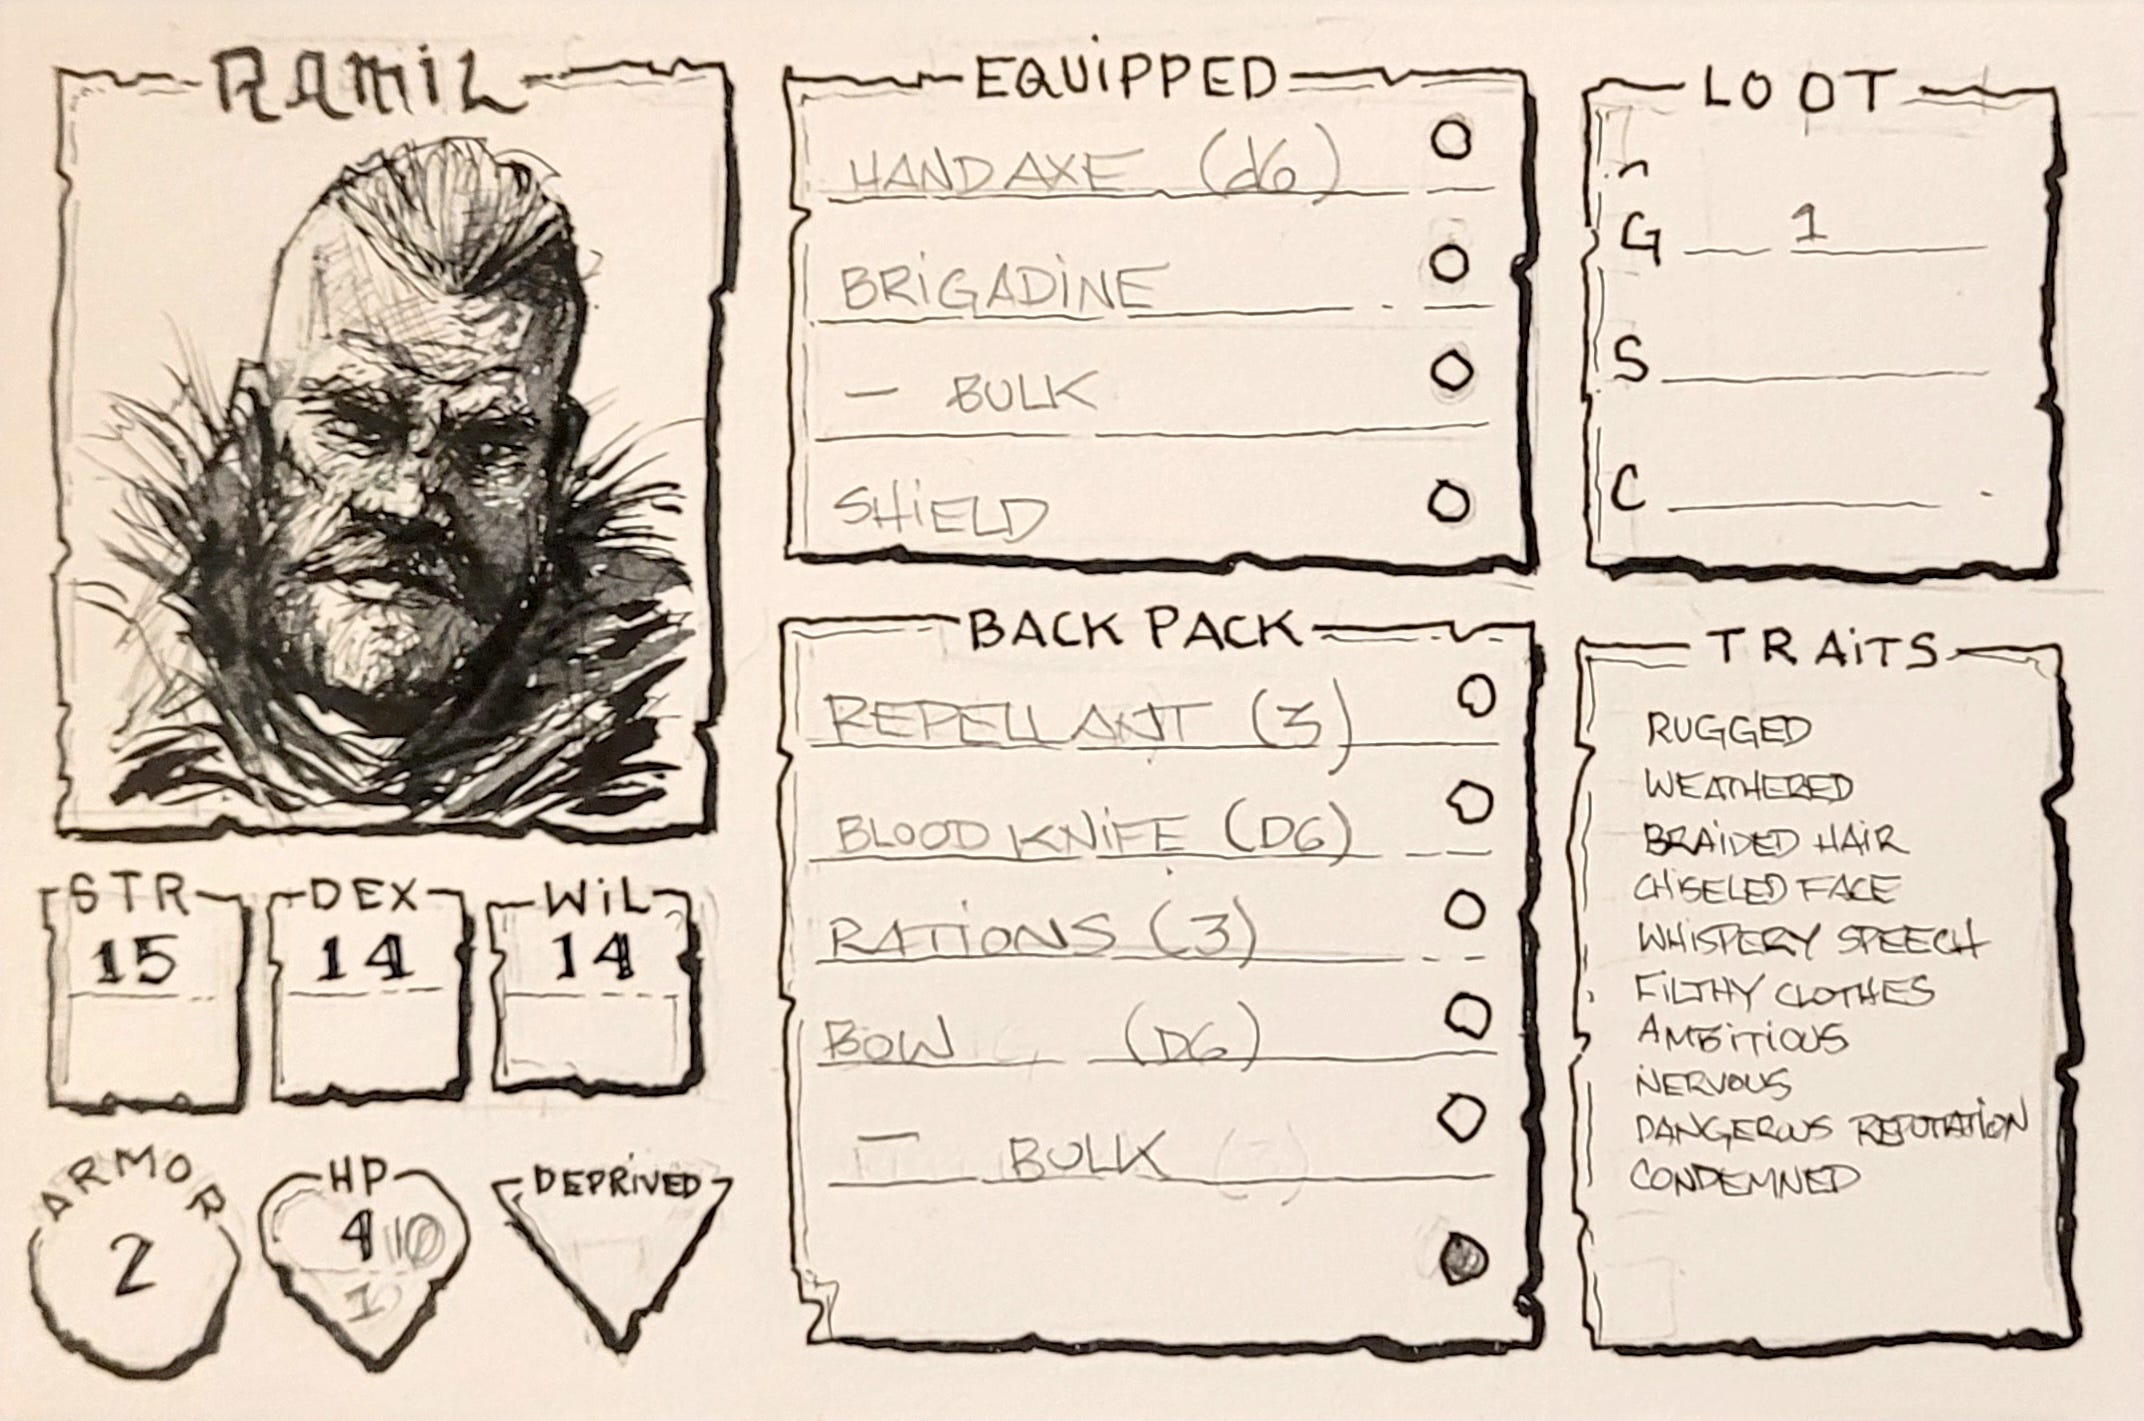 RAMIL
STR
15
DEX
14
WIL
14
ARMOR
2
HP
4
1
DEPRIVED
EQUIPPED
HANDAXE (d6)
BRIGADINE
— BULK
SHIELD
BACK PACK
REPELLANT (3)
BLOOD KNIFE (D6)
RATIONS (3)
BOW (D6)
— BULK
LOOT
G 1
S
C
TRAITS
RUGGED
WEATHERED
BRAIDED HAIR
CHISELED FACE
WHISPERY SPEECH
FILTHY CLOTHES
AMBITIOUS
NERVOUS
DANGEROUS REPUTATION
CONDEMNED